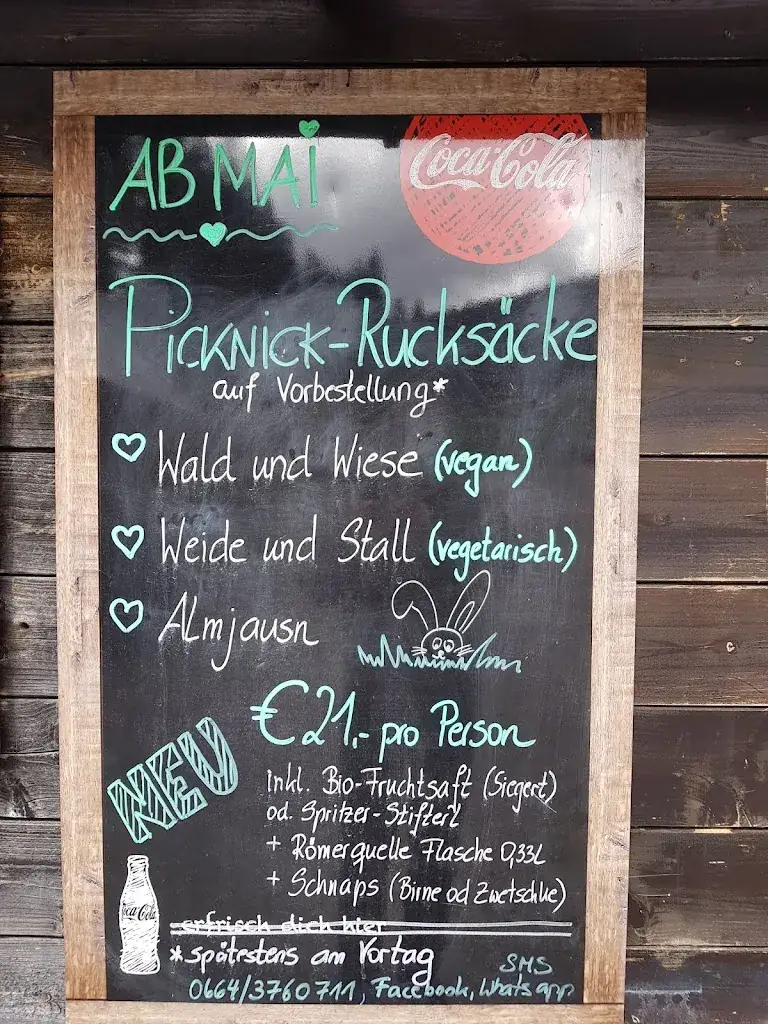 AB MAI
Coca-Cola
PICKNICK-Rucksäcke
auf Vorbestellung*
Wald und Wiese (vegan)
Weide und Stall (vegetarisch)
Almjausn
€21,- pro Person
NEU
inkl. Bio-Fruchtsaft (Siegert)
od. Spritzer-Stifterl
+ Römerquelle Flasche 0,33L
+ Schnaps (Birne od Zwetschke)
Coca-Cola
erfrisch dich hier
*spätestens am Vortag
SMS
0664/3760711, Facebook, Whatsapp